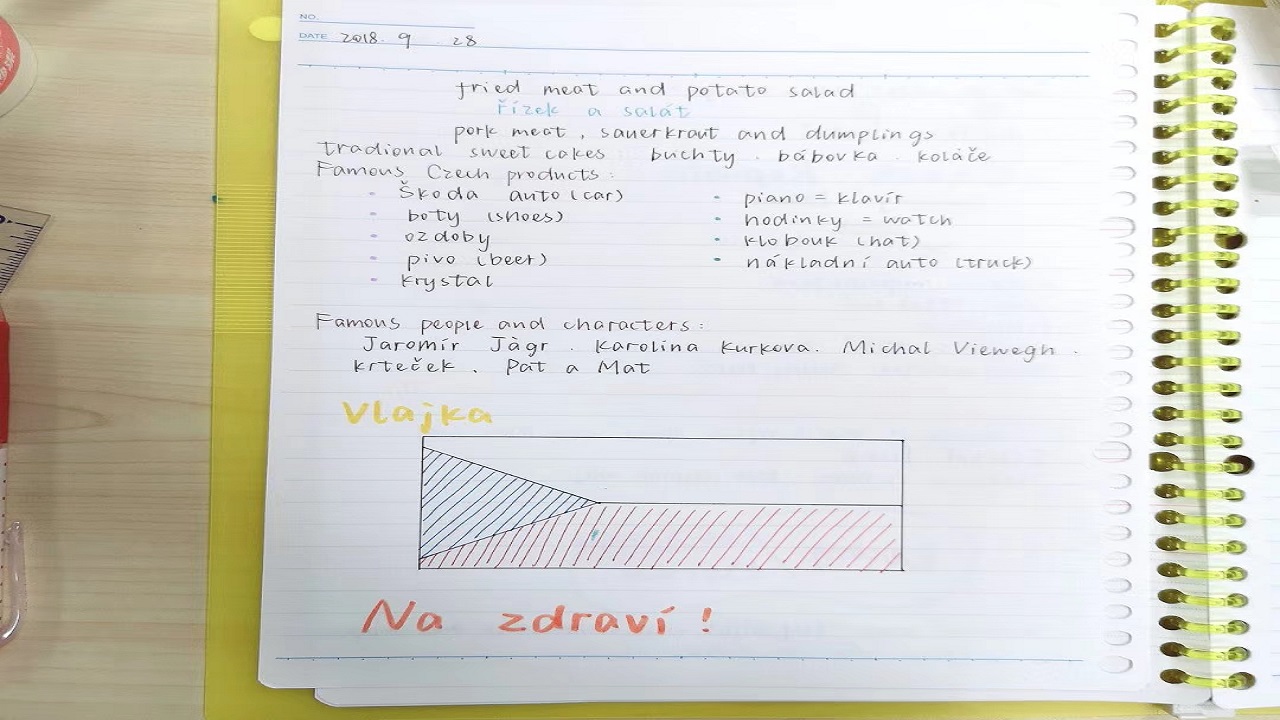 NO.
DATE 2018. 9 8
fried meat and potato salad
řízek a salát
meat, sauerkraut and dumplings
tradional cakes buchty. bábovka koláče
Famous Czech products:
Škoda auto (car)
boty (shoes)
zdoby
pivo
krystal
piano = klavír
hodinky = watch
klobouk (hat)
nákladní auto (truck)
Famous and characters:
Jaromír Karolina Kurkova. Michal Viewegh.
krteček Pat a Mat
Vlajka
Na zdraví!